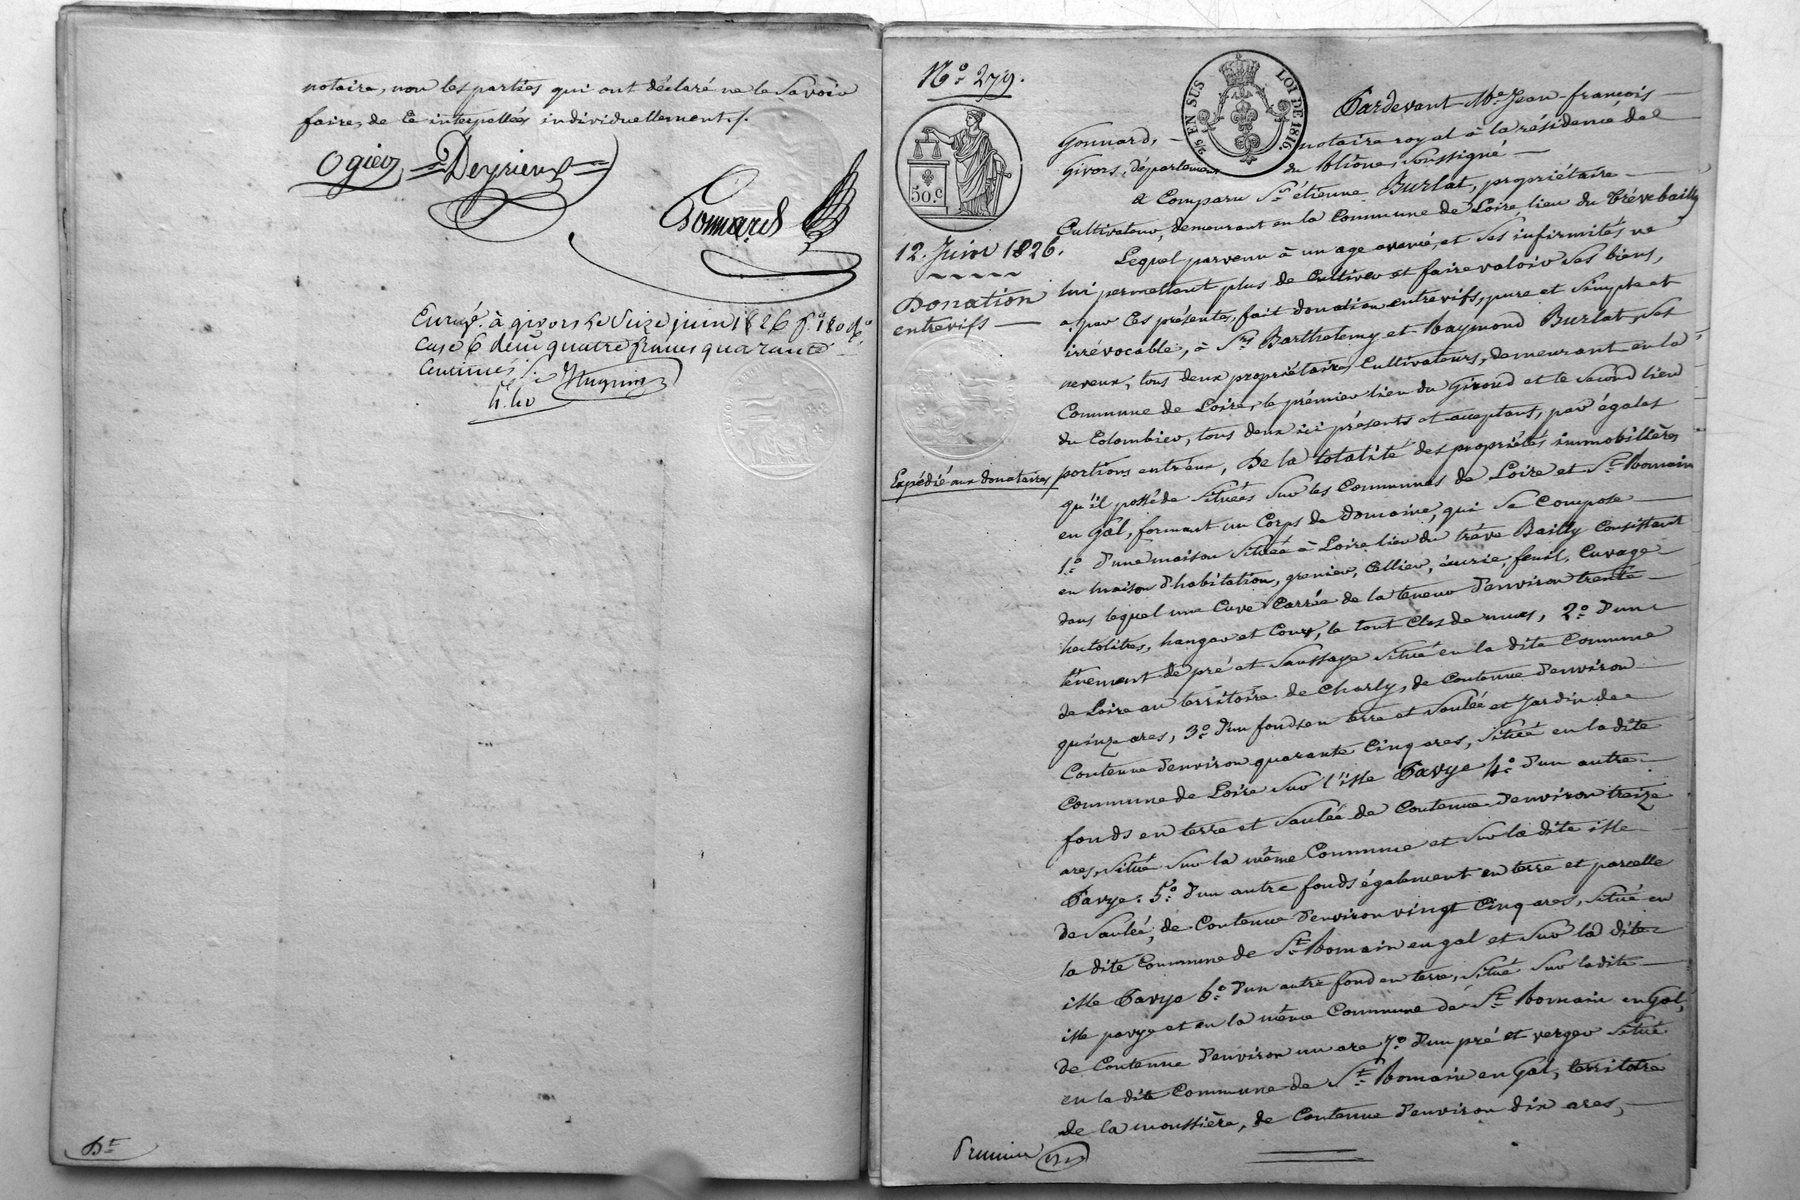 notaire, non les parties qui ont déclaré ne le Savoir
faire, de ce interpellés individuellement ./.
Ogier Deyrieux
Gonnard
Enregé. à givors le Seize juin 1826 fo. 180 Ro.
Case 6 Reçu quatre francs quarante
Centimes /.
4.40
No. 279.
50.c
25 EN SUS LOI DE 1816.
12. Juin 1826.
Donation
entrevifs
Expédié aux donataires
Pardevant Me. Jean-françois
Gonnard, notaire royal à la résidence de
Givors, département du Rhône, Soussigné
a Comparu Sr. étienne Burlat, propriétaire
Cultivateur, demeurant en la Commune de Loire, lieu du trêve bailly
Lequel parvenu à un age avancé, et Ses infirmités ne
lui permettant plus de Cultiver et faire valoir Ses biens,
a, par Ces présentes, fait donation entrevifs, pure et Simple et
irrévocable, à Srs. Barthelemy et Raymond Burlat, Ses
neveux, tous deux propriétaires Cultivateurs, demeurant en la
Commune de Loire, le prémier lieu du Giroud et le Second lieu
du Colombier, tous deux ici présents et acceptant, par égales
portions entr'eux, De la totalité des propriétés immobilières
qu'il posséde Situées Sur les Communes de Loire et St. Romain
en Gal, formant un Corps de domaine, qui Se Compose
1o. D'une maison Située à Loire lieu du trêve Bailly Consistant
en maison d'habitation, grenier, Cellier, écurie, fenil, Cuvage
dans lequel une Cuve Carrée de la teneur d'environ trente
hectolitres, hangar et Cour, le tout Clos de murs, 2o. D'un
ténement de pré et Saussaye Situé en la dite Commune
de Loire au territoire de Charly, de Contenue d'environ
quinze ares, 3o. D'un fonds en terre et Saulée et Jardin de
Contenue d'environ quarante Cinq ares, Situé en la dite
Commune de Loire Sur l'isle Pavye 4o. D'un autre
fonds en terre et Saulée de Contenue d'environ treize
ares, Situé Sur la même Commune et Sur la dite isle
Pavye. 5o. D'un autre fonds également en terre et parcelle
de Saulée, de Contenue d'environ vingt Cinq ares, Situé en
la dite Commune de St. Romain en gal et Sur la dite
isle Pavye 6o. D'un autre fond en terre, Situé Sur la dite
isle pavye et en la même Commune de St. Romain en Gal,
de Contenue d'environ un are 7o. D'un pré et verger Situé
en la dite Commune de St. Romain en Gal, territoire
de la moussière, de Contenue d'environ dix ares,